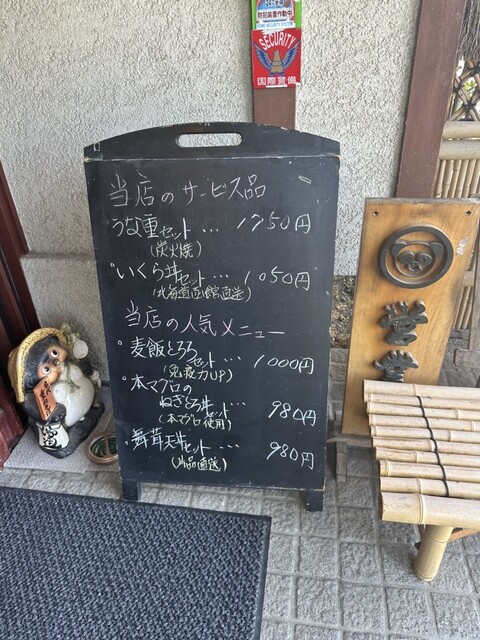 防犯装置作動中
SECURITY
国際警備
当店のサービス品
うな重セット… 1750円
(炭火焼)
いくら丼セット… 1050円
(北海道函館直送)
当店の人気メニュー
麦飯とろろ
セット… 1000円
(免疫力UP)
本マグロの
ねぎとろ丼セット 980円
(本マグロ使用)
舞茸天丼セット… 980円